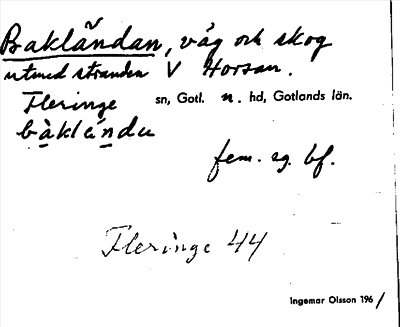 Bakländan, väg och skog
utmed stranden V Horsan.
Fleringe sn, Gotl. n. hd, Gotlands län.
bàklǽndu
fem. sg. bf.
Fleringe 44
Ingemar Olsson 1961